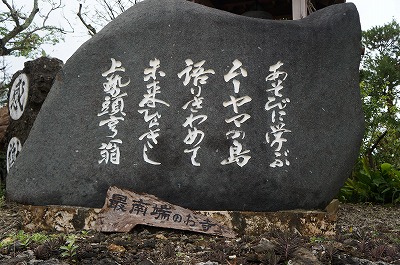 あそびに学ぶ
ムーヤマの島
語りきわめて
未来ひらきし
上勢頭亨翁
最南端のお寺